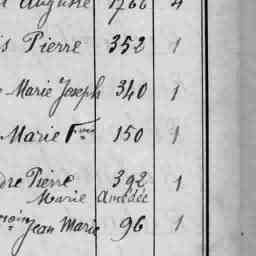 Auguste 1266 4
Pierre 352 1
Marie Joseph 340 1
Marie Fçois 150 1
dre Pierre 392 1
Marie Amédée
Jean Marie 96 1